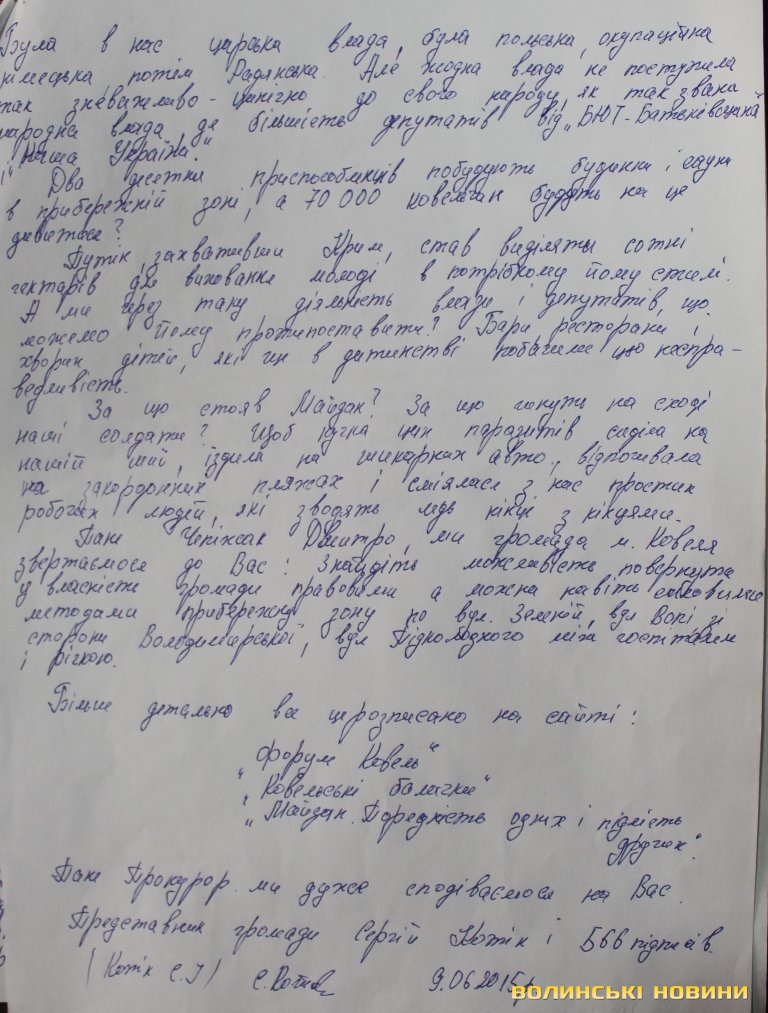 Була в нас царська влада, була польська, окупаційна
німецька потім Радянська. Але жодна влада не поступила
так зневажливо - цинічно до свого народу, як так звана
народна влада де більшість депутатів від „БЮТ-Батьківщина"
і „Наша Україна."
Два десятки приспособинців побудують будинки і сауни
в прибережній зоні, а 70 000 ковельчан будуть на це
дивитися?
Путін, захвативши Крим, став виділяти сотні
гектарів для виховання молоді в потрібному йому стилі.
А ми через таку діяльність влади і депутатів, що
можемо йому протипоставити? Бари, ресторани і
хворих дітей, які ще в дитинстві побачили цю неспра-
ведливість.
За що стояв Майдан? За що гинуть на сході
наші солдати? Щоб кучка цих паразитів сиділа на
нашій шиї, їздила на шикарних авто, відпочивала
на закордонних пляжах і сміялася з нас простих
робочих людей, які зводять ледь кінці з кінцями.
Пане Дмитро, ми громада м. Ковеля
звертаємося до Вас: Знайдіть можливість повернути
у власність громади правовими а можна навіть силовими
методами прибережну зону по вул. Зеленій, вул Волі зі
сторони Володимирської, вул Підколодного між гостттами
і річкою.
Більш детально все це розписано на сайті:
„Форум Ковель"
„Ковельські балачки"
„Майдан. Порядність одних і підлість
других".
Пане Прокурор ми дуже сподіваємося на Вас.
Представник громади Сергій Котік і 566 підписів.
(Котік С.І) 9.06 2015р
ВОЛИНСЬКІ НОВИНИ